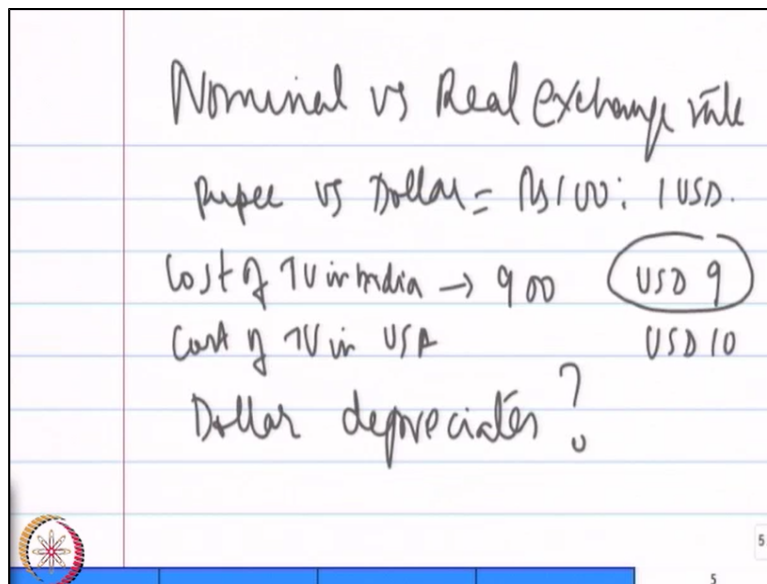 Nominal vs Real exchange rate
Rupee vs Dollar = Rs 100: 1 USD.
Cost of TV in India → 900 USD 9
Cost of TV in USA USD 10
Dollar depreciates?
5
5